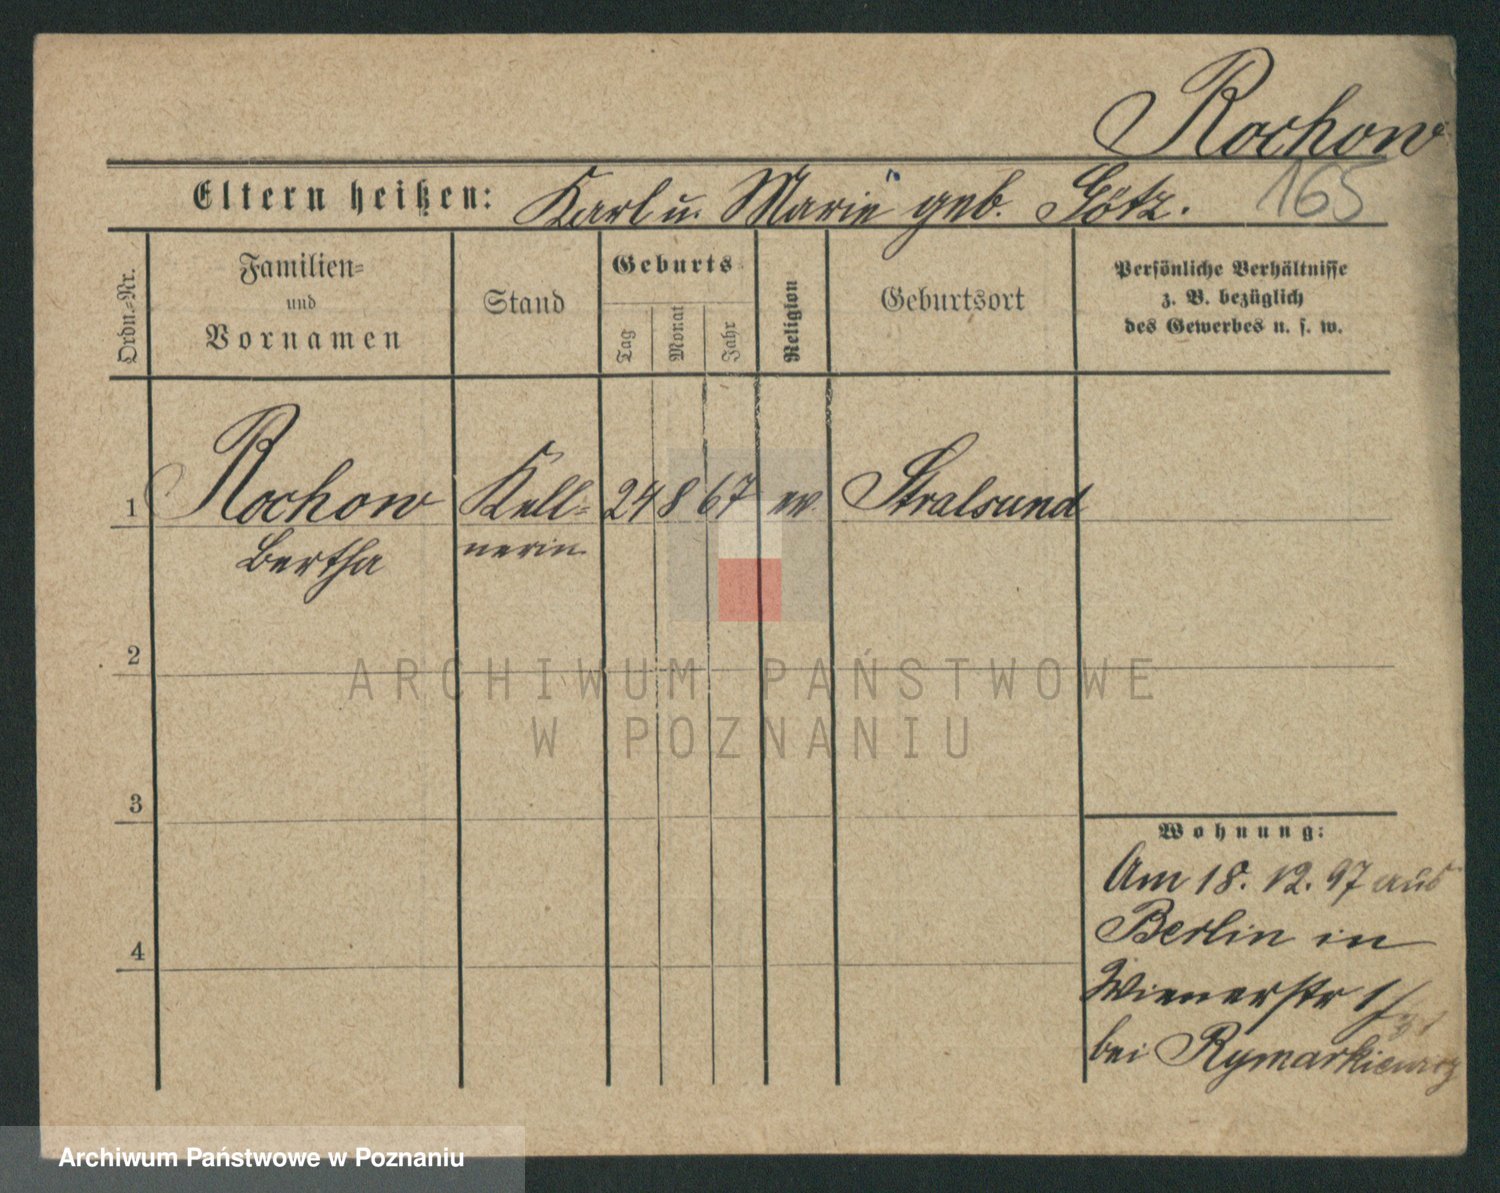 Rochow
165
Eltern heißen: Karl u. Marie geb. Götz.
Ordn.-Nr.
Familien-
und
Vornamen
Stand
Geburts
Tag
Monat
Jahr
Religion
Geburtsort
Persönliche Verhältnisse
z. B. bezüglich
des Gewerbes u. s. w.
1 Rochow Kell- 24 8 67 ev. Stralsund
Bertha nerin
2
3
4
Wohnung:
Am 18. 12. 97 aus
Berlin in
Wienerstr 1/
bei Rymarkiewicz
ARCHIWUM PAŃSTWOWE
W POZNANIU
Archiwum Państwowe w Poznaniu